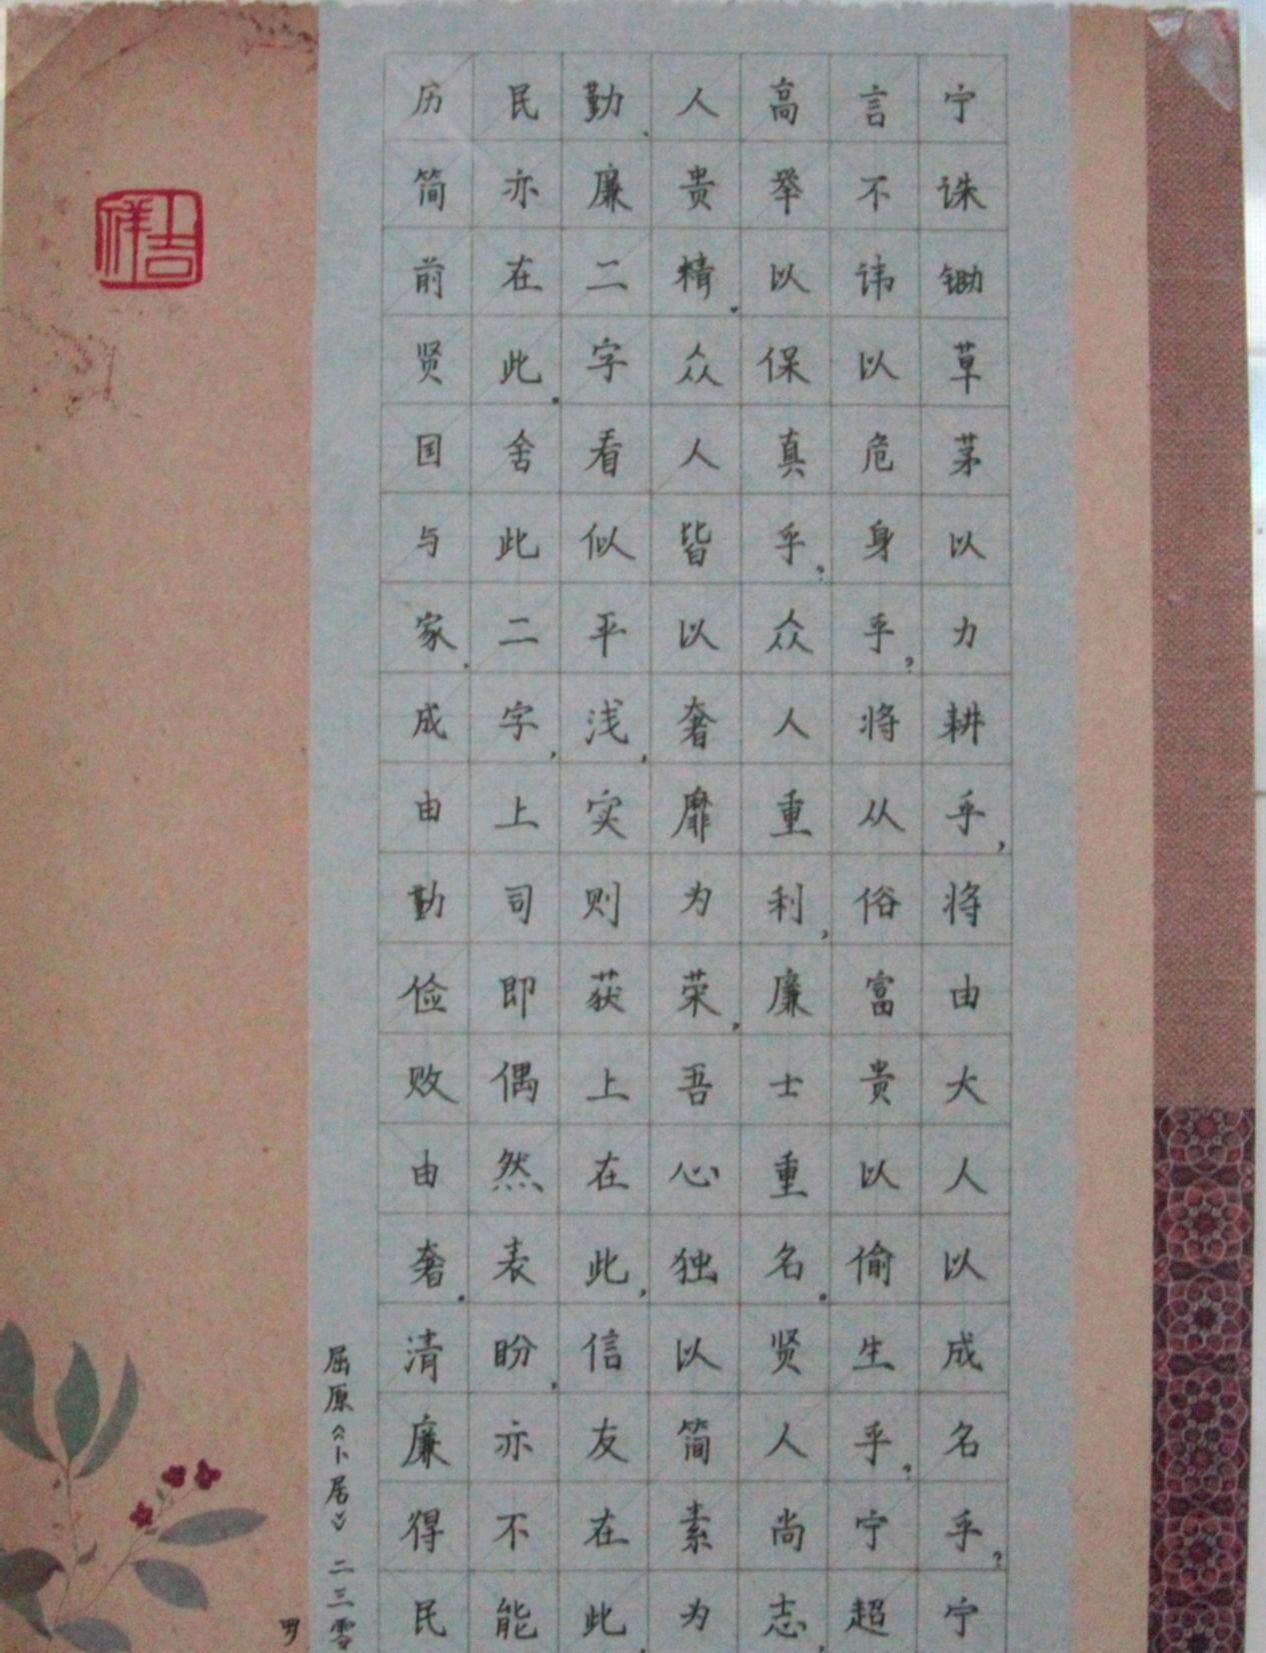 宁诛锄草茅以力耕乎,将由大人以成名乎?宁
言不讳以危身乎?将从俗富贵以偷生乎?宁超
高举以保真乎?众人重利,廉士重名。贤人尚志,
人贵精。众人皆以奢靡为荣,吾心独以简素为
勤、廉二字看似平浅,实则获上在此,信友在此,
民亦在此。舍此二字,上司即偶然表盼,亦不能
历简前贤国与家,成由勤俭败由奢。清廉得民
屈原《卜居》 二三
吉祥